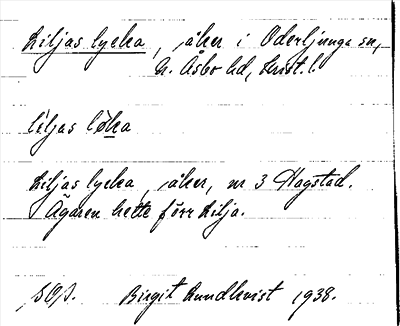 Liljas lycka, åker i Oderljunga sn,
N. Åsbo hd, Krist. l.
líljas lø̀ka
Liljas lycka, åker, nr 3 Hagstad.
Ägaren hette förr Lilja.
Birgit Lundkvist 1938.